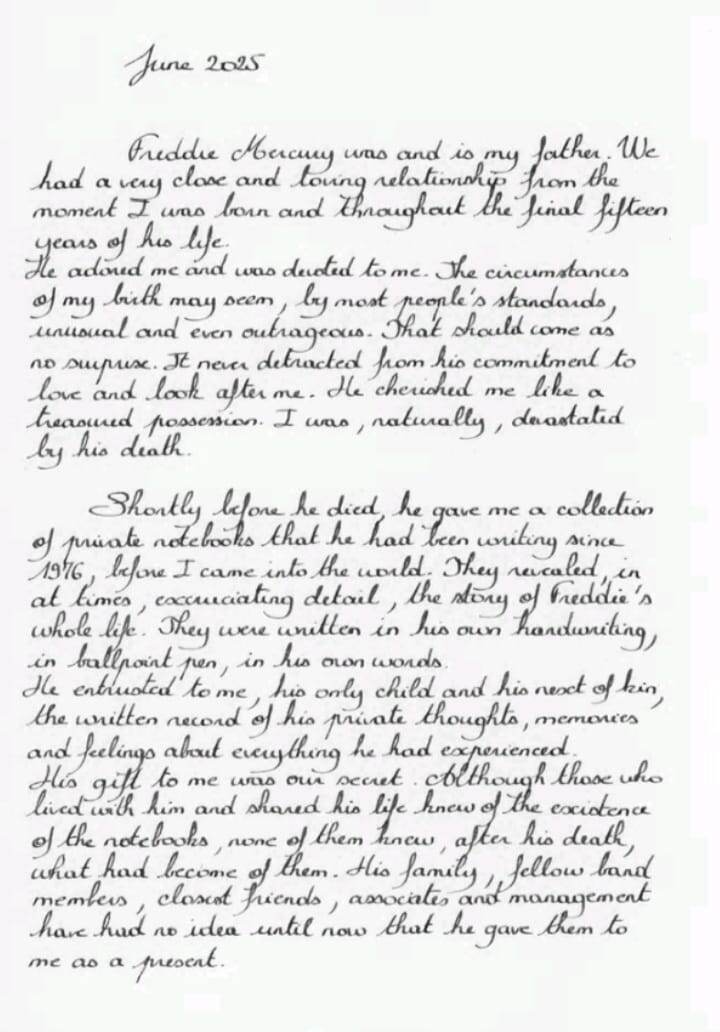 June 2025
Freddie Mercury was and is my father. We
had a very close and loving relationship from the
moment I was born and throughout the final fifteen
years of his life.
He adored me and was devoted to me. The circumstances
of my birth may seem, by most people's standards,
unusual and even outrageous. That should come as
no surprise. It never detracted from his commitment to
love and look after me. He cherished me like a
treasured possession. I was, naturally, devastated
by his death.
Shortly before he died, he gave me a collection
of private notebooks that he had been writing since
1976, before I came into the world. They revealed, in
at times, excruciating detail, the story of Freddie's
whole life. They were written in his own handwriting,
in ballpoint pen, in his own words.
He entrusted to me, his only child and his next of kin,
the written record of his private thoughts, memories
and feelings about everything he had experienced.
His gift to me was our secret. Although those who
lived with him and shared his life knew of the existence
of the notebooks, none of them knew, after his death,
what had become of them. His family, fellow band
members, closest friends, associates and management
have had no idea until now that he gave them to
me as a present.